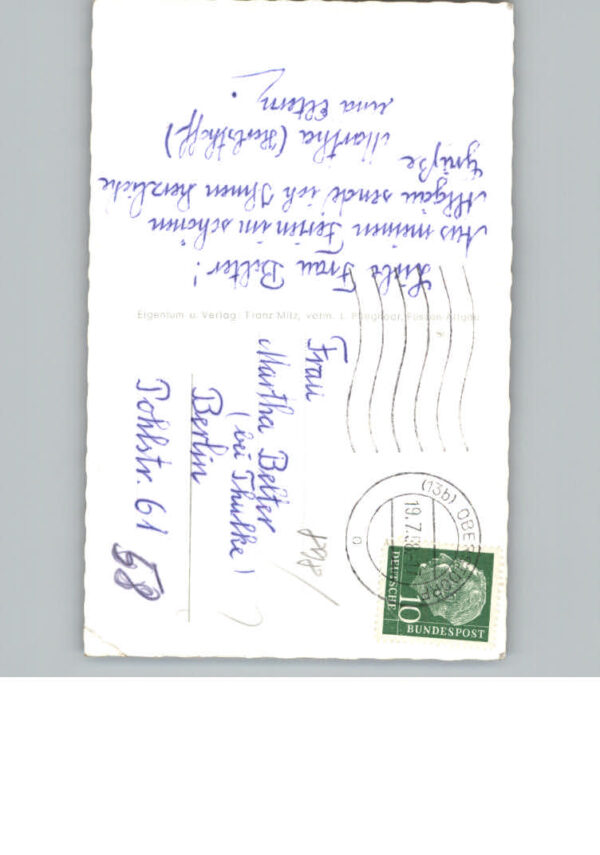 Liebe Frau Belter!
Aus meinen Ferien im schönen
Allgäu sende ich Ihnen herzliche
Grüße
Martha (Herbsthoff)
und Eltern.
Eigentum u. Verlag: Franz Milz, verm. L. Füssen Allgäu
Frau
Martha Belter
(bei Thulke)
Berlin
Pohlstr. 61
58
(13b)
19.7.58
a
10
DEUTSCHE
BUNDESPOST